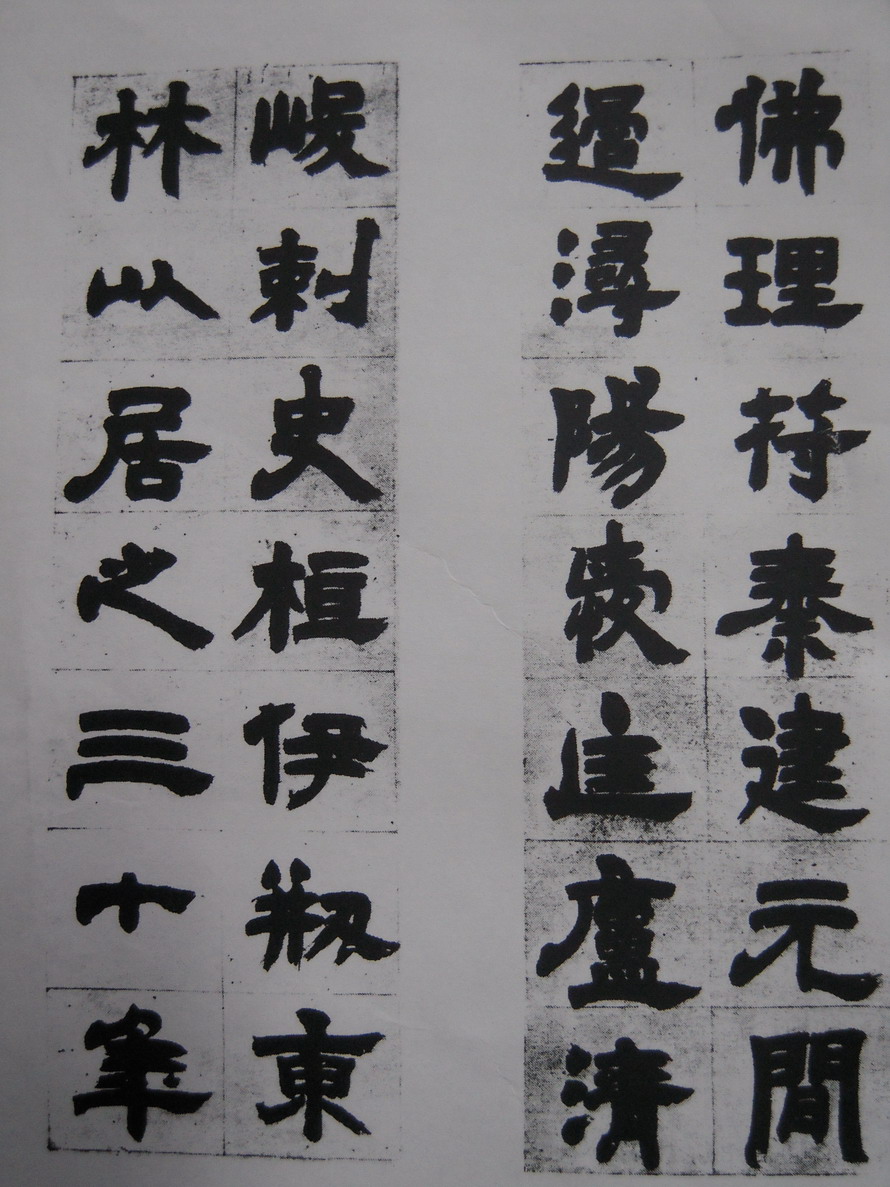 佛理苻秦建元間
過潯陽愛匡廬清
峻刺史桓伊剏東
林以居之三十年